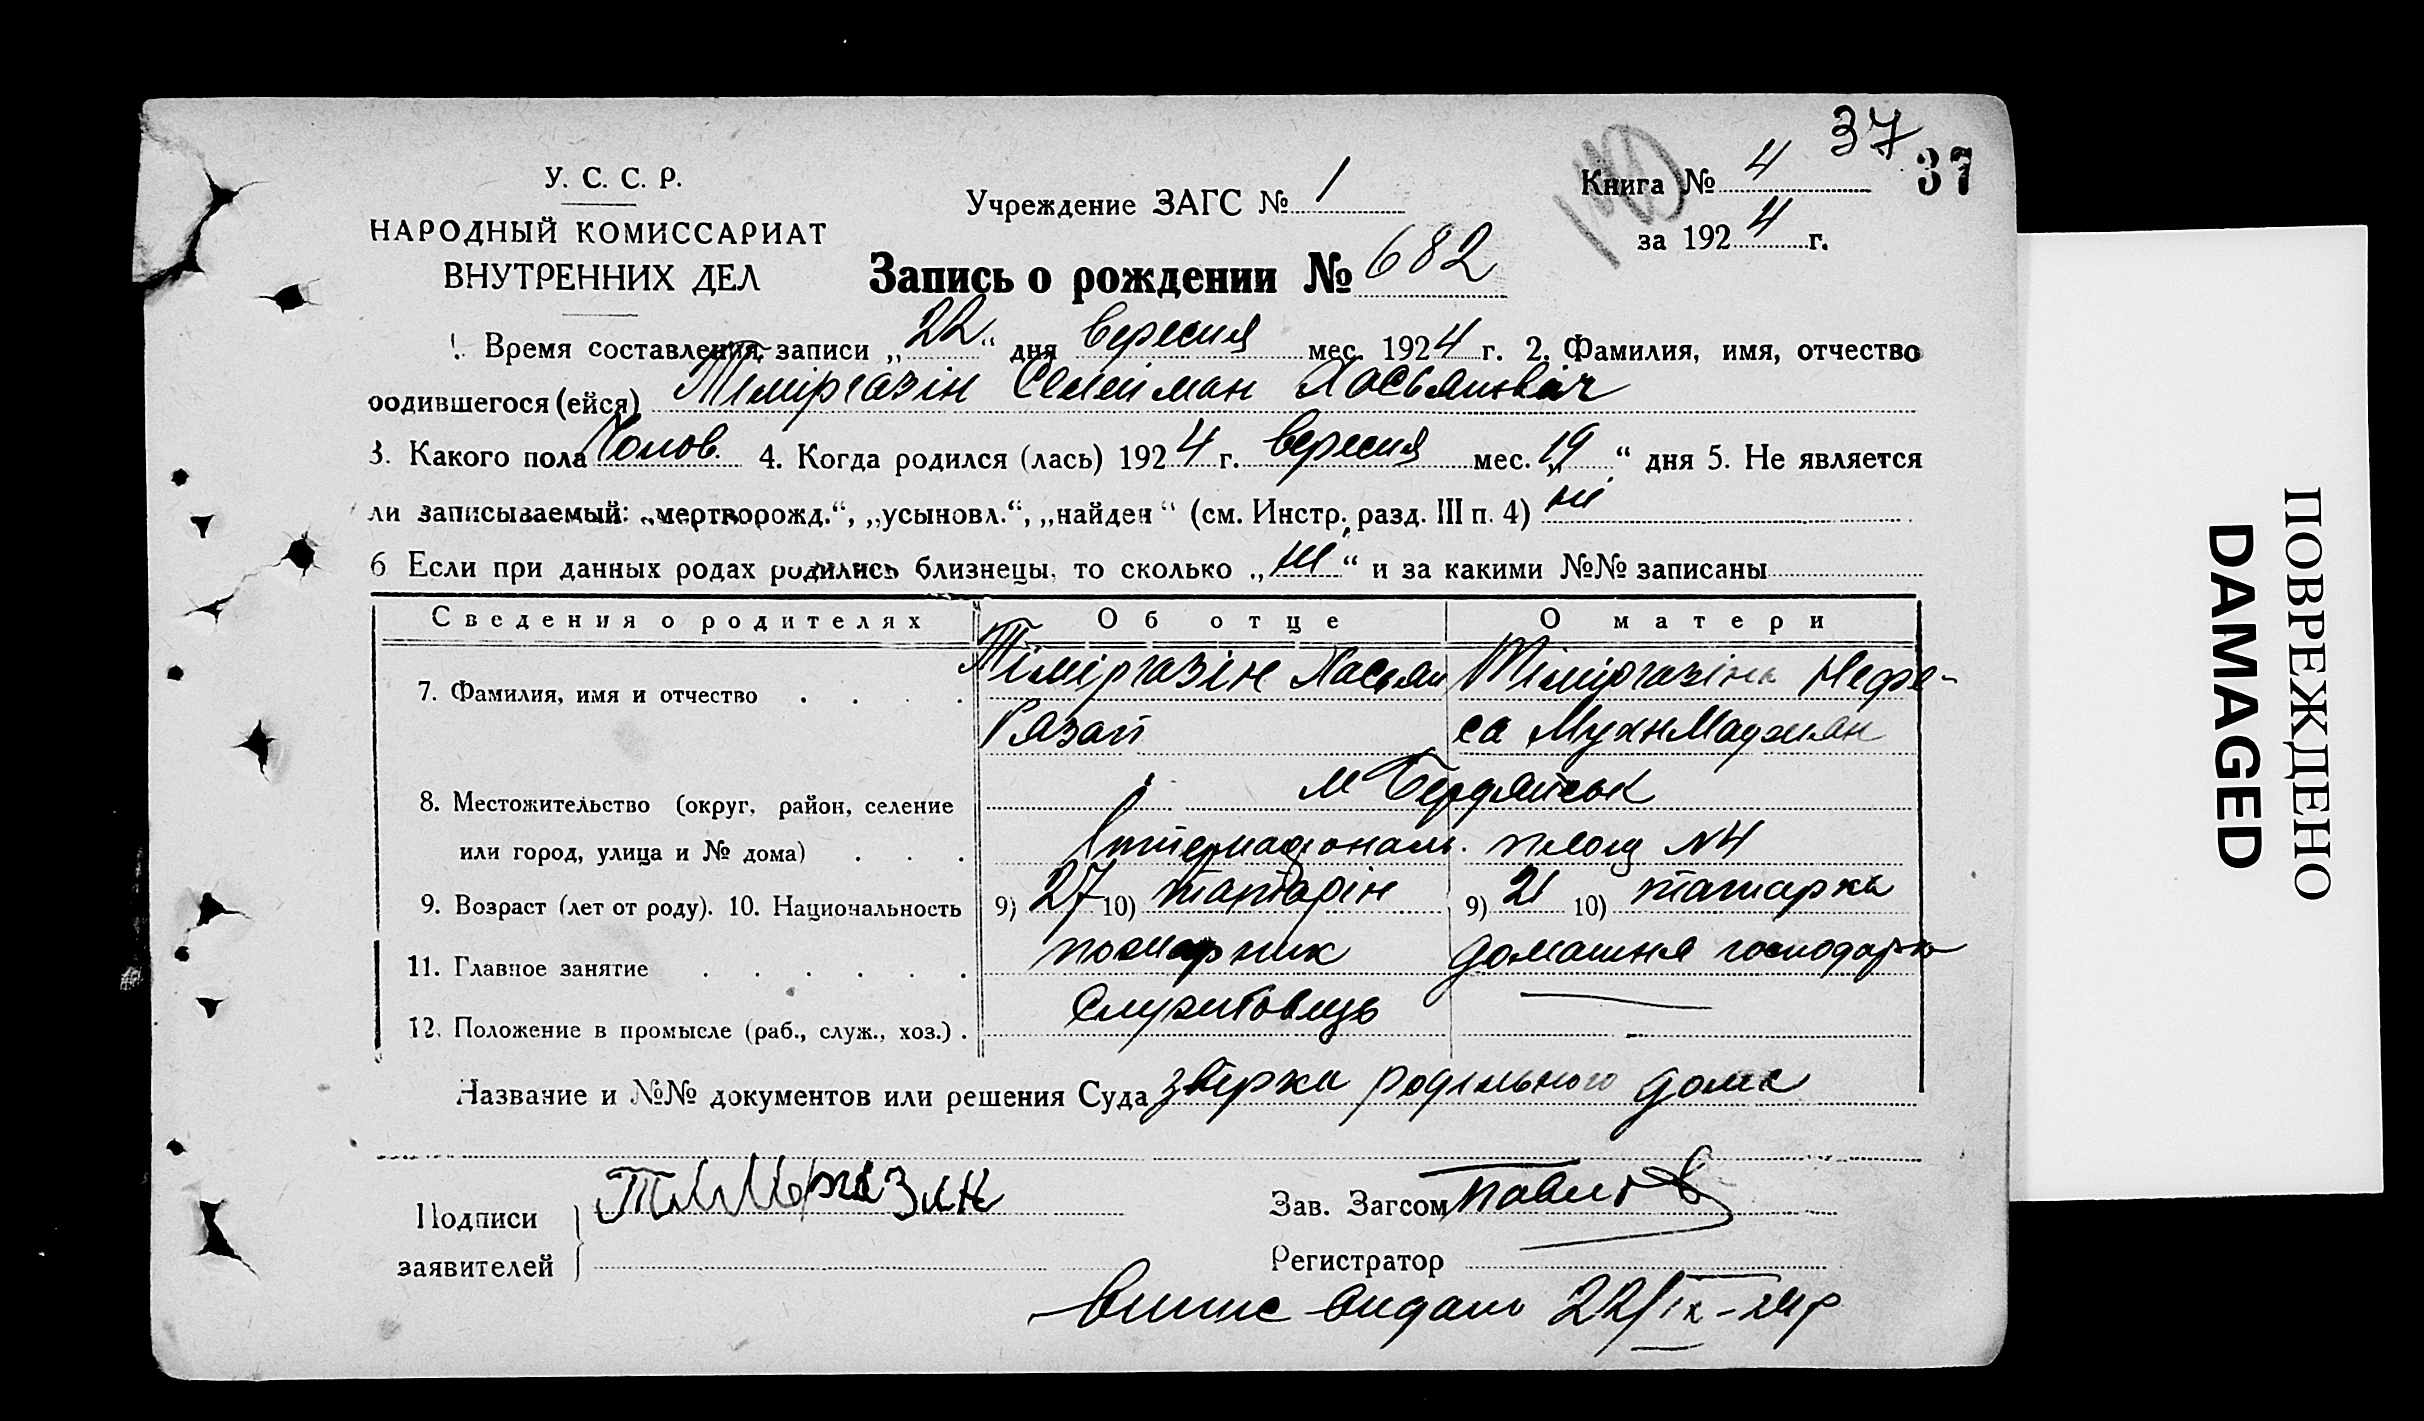 37
У. С. С. Р.
Учреждение ЗАГС № 1
Книга № 4
37
НАРОДНЫЙ КОМИССАРИАТ
ВНУТРЕННИХ ДЕЛ
за 1924 г.
Запись о рождении № 682
1. Время составления записи „22“ дня вересня мес. 1924 г. 2. Фамилия, имя, отчество
родившегося (ейся) Тіміргазін Сулейман Хасьянович
3. Какого пола Чолов. 4. Когда родился (лась) 1924 г. вересня мес. „19“ дня 5. Не является
ли записываемый: „мертворожд.“, „усыновл.“, „найден“ (см. Инстр. разд. III п. 4) ні
6 Если при данных родах родились близнецы, то сколько „ні“ и за какими №№ записаны
Сведения о родителях Об отце О матери
7. Фамилия, имя и отчество Тімірґазін Хасьян Тімірґазіна Нефе-
Газай са
8. Местожительство (округ, район, селение м Бердянськ
или город, улица и № дома) Інтернаціональ. площ №4
9. Возраст (лет от роду). 10. Национальность 9) 27 10) татарін 9) 21 10) татарка
11. Главное занятие пожарник домашня господарка
12. Положение в промысле (раб., служ., хоз.) Службовець —
Название и №№ документов или решения Суда родильного дома
Подписи заявителей Тимиргазин
Зав. Загсом Павлов
Регистратор
Випис видано 22/IX-24р
ПОВРЕЖДЕНО
DAMAGED